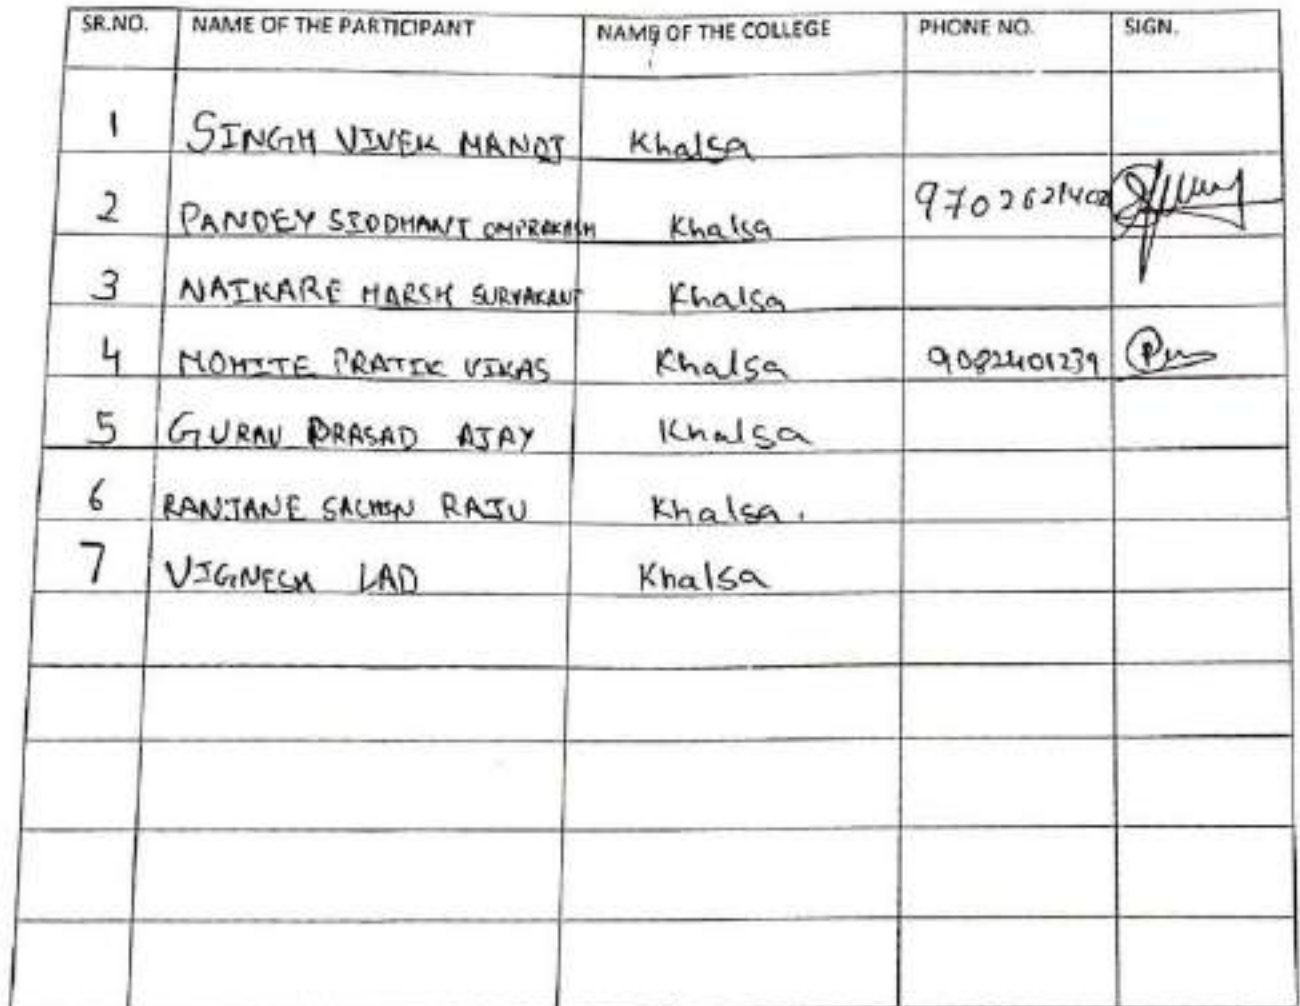 SR.NO. NAME OF THE PARTICIPANT NAME OF THE COLLEGE PHONE NO. SIGN.
1 SINGH VIVEK MANOJ Khalsa
2 PANDEY SIDDHANT OMPRAKASH Khalsa 9702621402
3 NAIKARE HARSH SURYAKANT Khalsa
4 MOHITE PRATIK VIKAS Khalsa 9082401239
5 GURAV PRASAD AJAY Khalsa
6 RANJANE SACHIN RAJU Khalsa.
7 VIGNESH LAD Khalsa